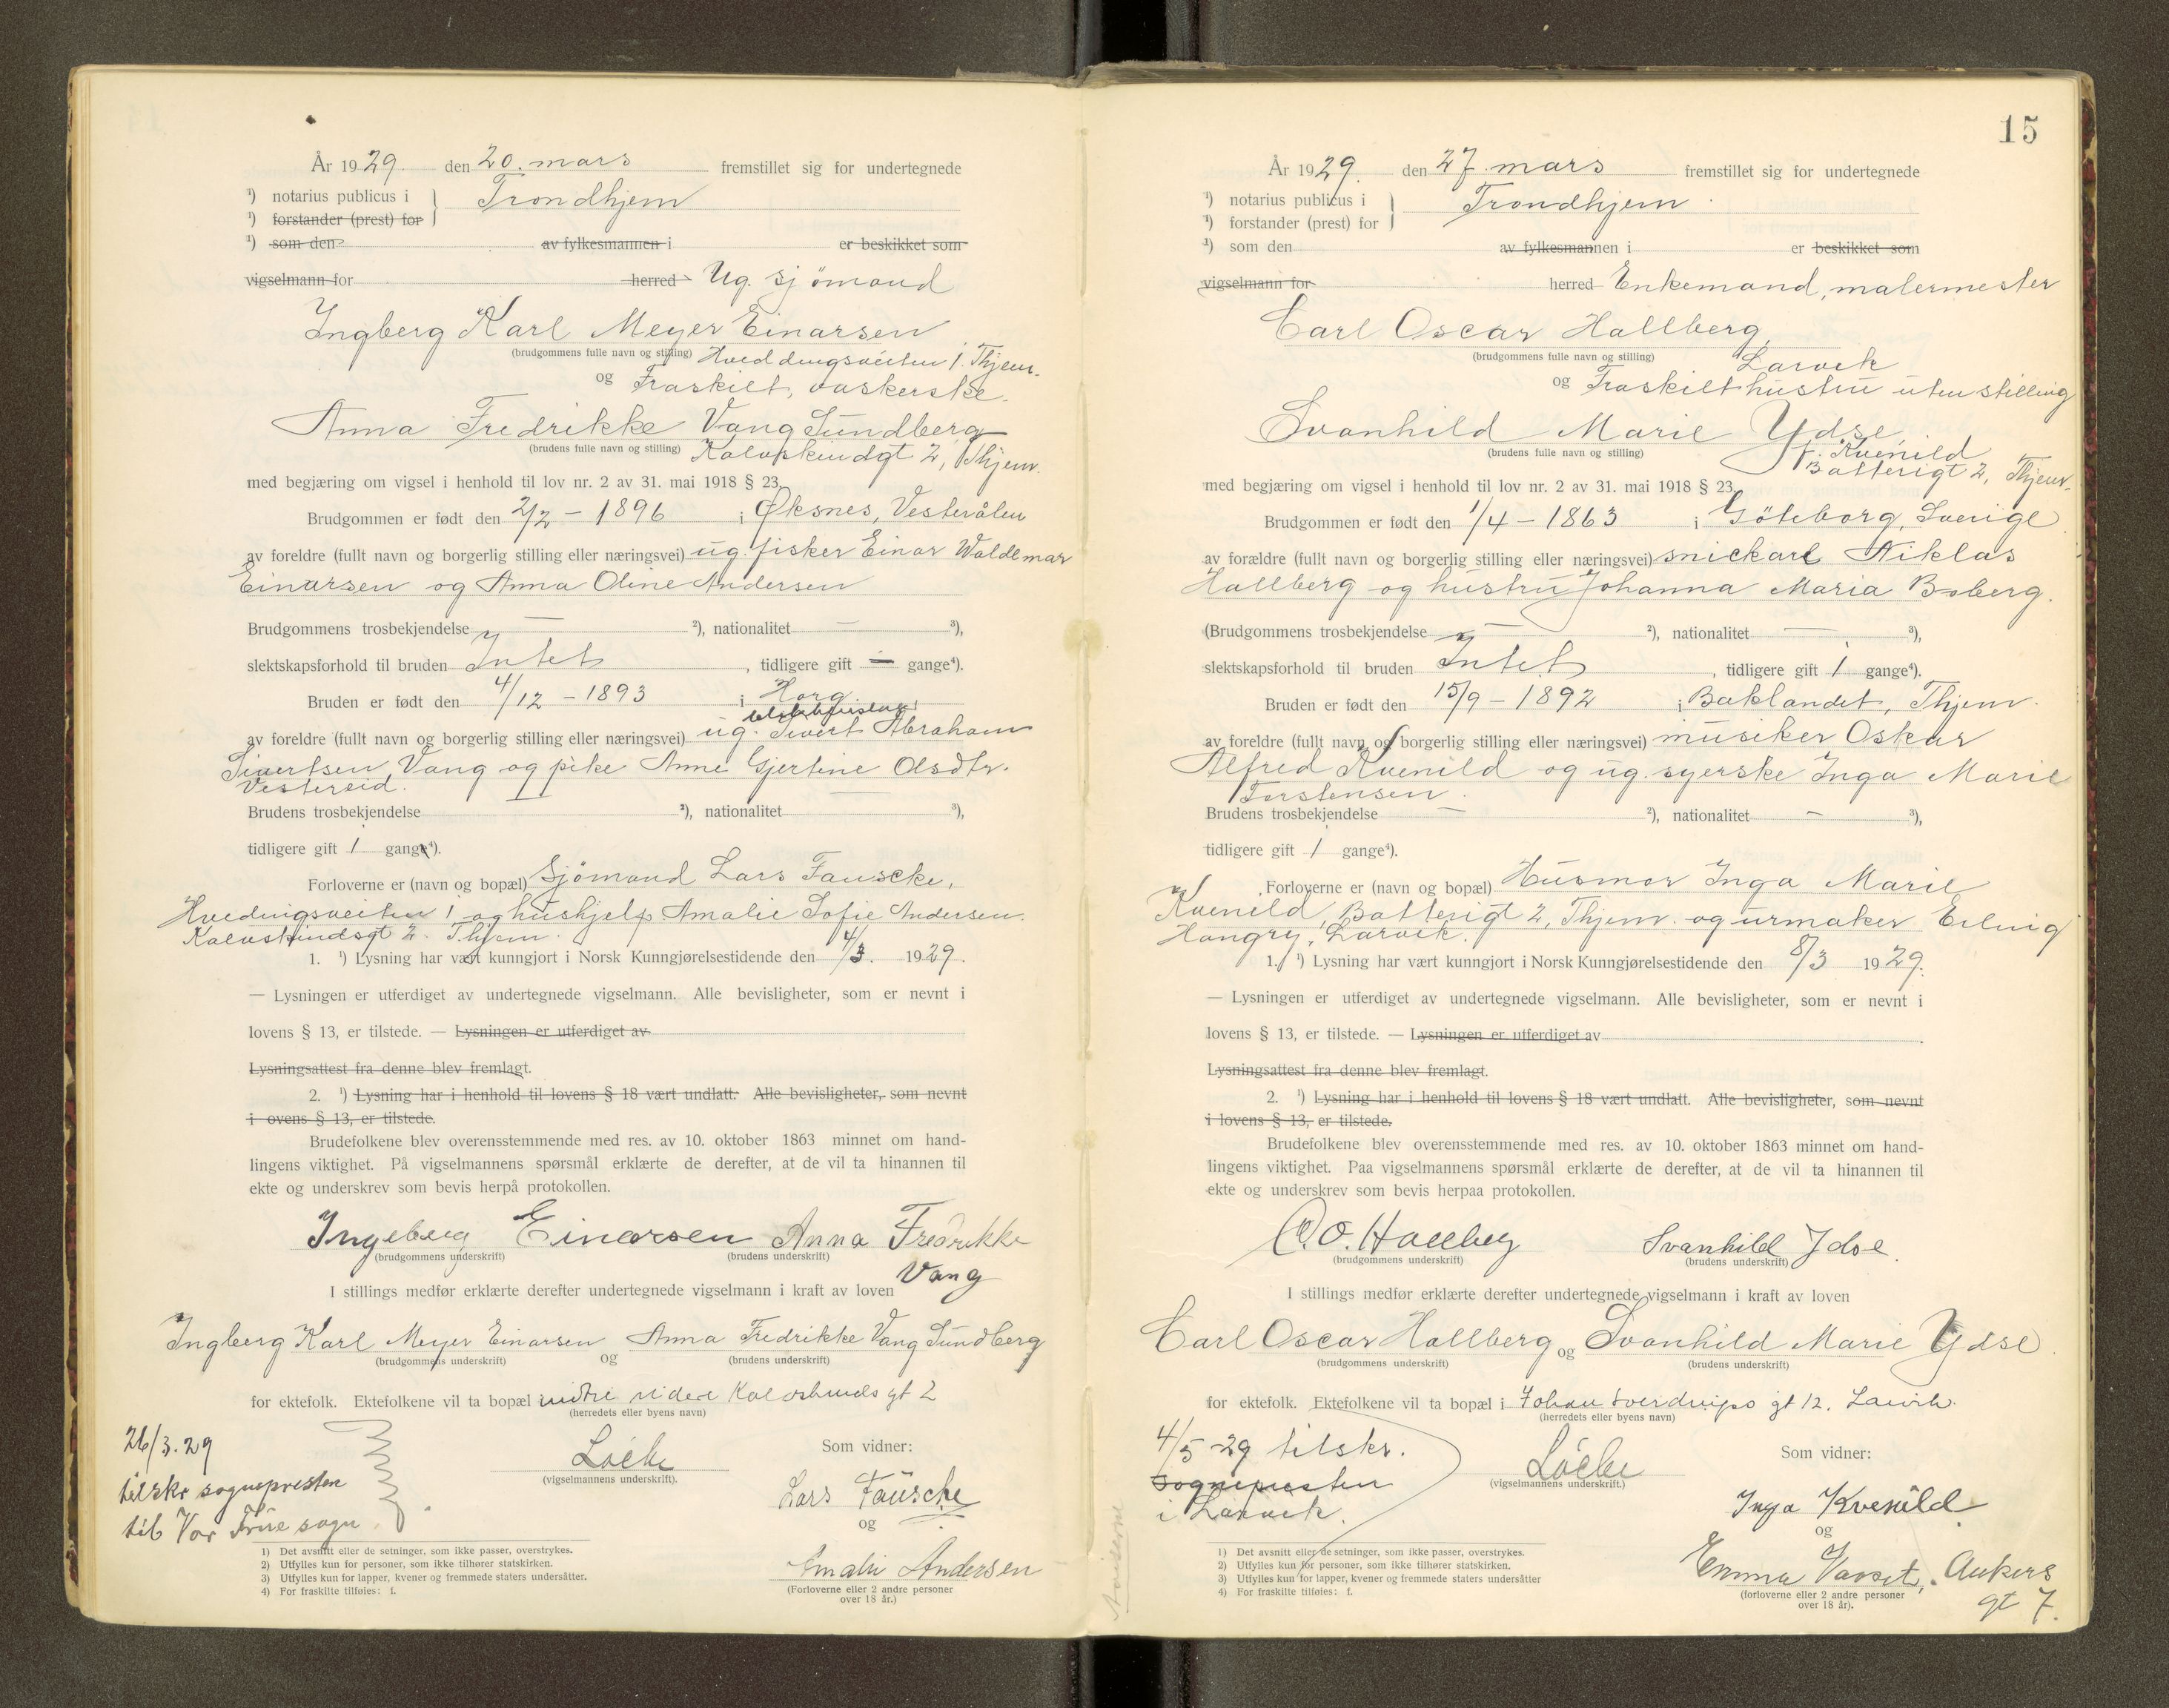 År 1929 den 20. mars fremstillet sig for undertegnede
¹) notarius publicus i } Trondhjem
¹) forstander (prest) for
¹) som den av fylkesmannen i er beskikket som
vigselmann for herred Ug. sjömand
Ingberg Karl Meyer Einarsen
(brudgommens fulle navn og stilling) Hveddingsveiten 1. Thjem.
og Fraskilt, vaskerske
Anna Fredrikke Vang Sundberg
(brudens fulle navn og stilling) Kalvskindgt 2, Thjem.
med begjæring om vigsel i henhold til lov nr. 2 av 31. mai 1918 § 23.
Brudgommen er født den 2/2 - 1896 i Øksnes, Vesterålen
av foreldre (fullt navn og borgerlig stilling eller næringsvei) ug. fisker Einar Waldemar
Einarsen og Anna Oline Andersen
Brudgommens trosbekjendelse — ²), nationalitet — ³),
slektskapsforhold til bruden Intet, tidligere gift — gange⁴).
Bruden er født den 4/12 - 1893 i Horg
av foreldre (fullt navn og borgerlig stilling eller næringsvei) ug. Sivert Abraham
Sivertsen Vang og pike Anne Gjertine Olsdtr.
Vestereid.
Brudens trosbekjendelse — ²), nationalitet — ³),
tidligere gift 1 gange⁴).
Forloverne er (navn og bopæl) Sjömand Lars Fauscke,
Hvedingsveiten 1 og hushjelp Amalie Sofie Andersen.
Kalvskindsgt 2. Thjem.
1. ¹) Lysning har vært kunngjort i Norsk Kunngjørelsestidende den 4/3. 1929.
— Lysningen er utferdiget av undertegnede vigselmann. Alle bevisligheter, som er nevnt i
lovens § 13, er tilstede. — Lysningen er utferdiget av
Lysningsattest fra denne blev fremlagt.
2. ¹) Lysning har i henhold til lovens § 18 vært undlatt. Alle bevisligheter, som nevnt
i ovens § 13, er tilstede.
Brudefolkene blev overensstemmende med res. av 10. oktober 1863 minnet om hand-
lingens viktighet. På vigselmannens spørsmål erklærte de derefter, at de vil ta hinannen til
ekte og underskrev som bevis herpå protokollen.
Ingeberg Einarsen Anna Fredrikke
(brudgommens underskrift) (brudens underskrift)
Vang
I stillings medfør erklærte derefter undertegnede vigselmann i kraft av loven
Ingberg Karl Meyer Einarsen og Anna Fredrikke Vang Sundberg
(brudgommens underskrift) (brudens underskrift)
for ektefolk. Ektefolkene vil ta bopæl Kalvskinds gt 2
(herredets eller byens navn)
26/3.29
tilskr sognepresten
til Vor Frue sogn
Löcke
(vigselmannens underskrift).
Som vidner:
Lars Fausche
og
Amalie Andersen
(Forloverne eller 2 andre personer
over 18 år.)
1) Det avsnitt eller de setninger, som ikke passer, overstrykes.
2) Utfylles kun for personer, som ikke tilhører statskirken.
3) Utfylles kun for lapper, kvener og fremmede staters undersåtter.
4) For fraskilte tilføies: f.
15
År 1929. den 27. mars fremstillet sig for undertegnede
¹) notarius publicus i } Trondhjem
¹) forstander (prest) for
¹) som den av fylkesmannen i er beskikket som
vigselmann for herred Enkemand, malermester
Carl Oscar Hallberg,
(brudgommens fulle navn og stilling) Larvik
og Fraskilt hustru uten stilling
Svanhild Marie Ydse,
(brudens fulle navn og stilling) f. Kvenild
Batterigt 2, Thjem.
med begjæring om vigsel i henhold til lov nr. 2 av 31. mai 1918 § 23.
Brudgommen er født den 1/4 - 1863 i Göteborg, Sverige
av forældre (fullt navn og borgerlig stilling eller næringsvei) snickare Niklas
Hallberg og hustru Johanna Maria Boberg.
(Brudgommens trosbekjendelse — ²), nationalitet — ³),
slektskapsforhold til bruden Intet, tidligere gift 1 gange⁴).
Bruden er født den 15/9 - 1892 i Baklandet, Thjem.
av foreldre (fullt navn og borgerlig stilling eller næringsvei) musiker Oskar
Alfred Kvenild og ug. syerske Inga Marie
Torstensen.
Brudens trosbekjendelse — ²), nationalitet — ³),
tidligere gift 1 gange⁴).
Forloverne er (navn og bopæl) Husmor Inga Marie
Kvenild, Batterigt 2, Thjem. og urmaker Erling
Hangry, Larvik.
1. ¹) Lysning har vært kunngjort i Norsk Kunngjørelsestidende den 8/3 1929.
— Lysningen er utferdiget av undertegnede vigselmann. Alle bevisligheter, som er nevnt i
lovens § 13, er tilstede. — Lysningen er utferdiget av
Lysningsattest fra denne blev fremlagt.
2. ¹) Lysning har i henhold til lovens § 18 vært undlatt. Alle bevisligheter, som nevnt
i lovens § 13, er tilstede.
Brudefolkene blev overensstemmende med res. av 10. oktober 1863 minnet om hand-
lingens viktighet. Paa vigselmannens spørsmål erklærte de derefter, at de vil ta hinannen til
ekte og underskrev som bevis herpaa protokollen.
C. O. Hallberg Svanhild Ydse.
(brudgommens underskrift) (brudens underskrift)
I stillings medfør erklærte derefter undertegnede vigselmann i kraft av loven
Carl Oscar Hallberg og Svanhild Marie Ydse.
(brudgommens underskrift) (brudens underskrift)
for ektefolk. Ektefolkene vil ta bopæl i Johan Sverdrups gt 12. Larvik.
(herredets eller byens navn)
4/5 -29 tilskr.
sognepresten
i Larvik.
Löcke
(vigselmannens underskrift.)
Som vidner:
Inga Kvenild
og
Emma Vasset, Ankers
gt 7.
(forloverne eller 2 andre personer
over 18 år).
1) Det avsnitt eller de setninger, som ikke passer, overstrykes.
2) Utfylles kun for personer, som ikke tilhører statskirken.
3) Utfylles kun for lapper, kvener og fremmede staters undersåtter
4) For fraskilte tilføies: f.